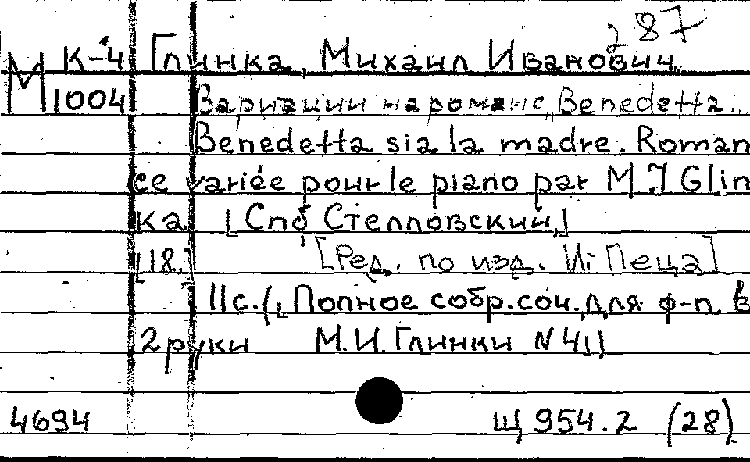 287
М К-4 Глинка, Михаил Иванович.
1004 Вариации на романс „Benedetta..
Benedetta sia la madre. Roman
ce variée pour le piano par M. J Glin
ка [Спб Стелловский,]
[18.] [Ред. по изд. И. Пеца]
11с. ([Полное собр. соч. для ф-п. в
2 руки М.И. Глинки N 4])
4694 Щ 954.2 (28)